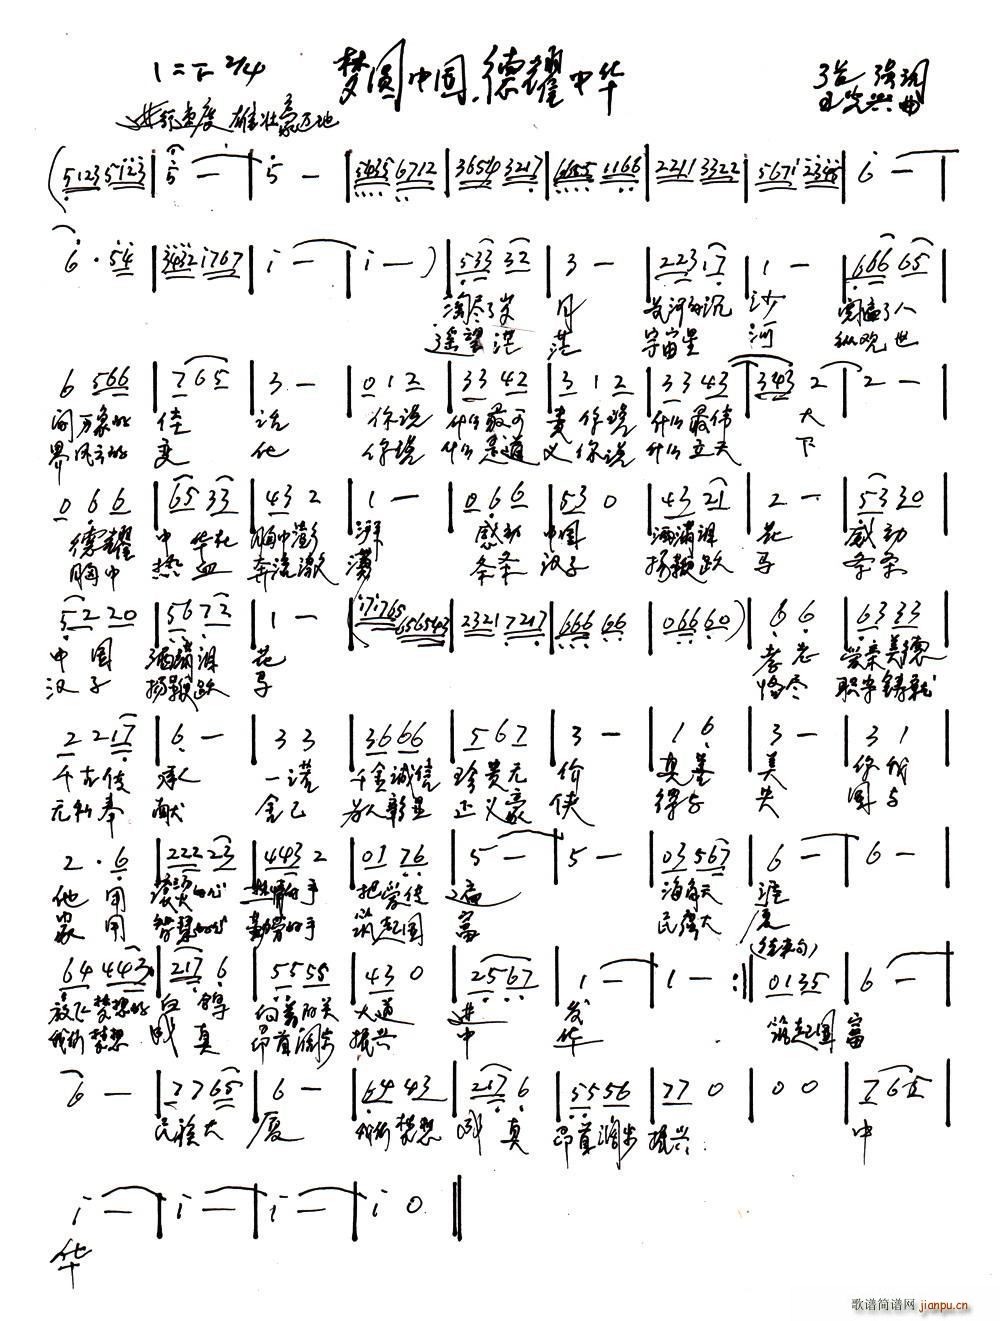 1=F 2/4 梦圆中国.德耀中华
(5123 5123 | 5 — | 5 — | 5435 6712 | 3654 3217 | 6655 1166 | 2211 3322 | 5671 2345 | 6 — |
6 · 54 | 3432 1767 | i — | i — ) | 533 32 | 3 — | 223 17 | 1 — | 666 65 |
淘尽了岁 月 长河的沉 沙 人
遥望茫 茫 宇宙星 河 纵观世
6 566 | 765 | 3 — | 0 12 | 33 42 | 3 12 | 33 43 | 343 2 | 2 — |
间万象的 佳 话 你说 什么最可 贵 你说 什么最伟 大
界风云的 变 化 你说 什么是道 义 你说 什么立天 下
0 66 | 65 33 | 43 2 | 1 — | 0 66 | 53 0 | 43 21 | 2 — | 53 30 |
德耀 中华在 胸中澎 湃 感动 中国 洒满泪 花 感动
胸中 热血 奔流激 条条 汉子 扬鞭跃 马 条条
52 20 | 56 72 | 1 — | (171765 656543 | 2321 7217 | 666 66 | 066 60) | 6 6 | 63 33 |
中国 洒满泪 花 孝老 爱亲美德
汉子 扬鞭跃 马
2 217 | 6 — | 3 3 | 36 66 | 5 67 | 3 — | 1 6 | 3 — | 3 1 |
千古传 承 一诺 千金诚信 珍贵无 价 真善 美 你我
奉 献 舍己 为人彰显 正义豪 侠 得与 失 国与
2 · 6 | 222 23 | 443 2 | 01 76 | 5 — | 5 — | 03 567 | 6 — | 6 — |
他 用 的手 把爱传 遍 海角天 涯
家 用 智慧的 勤劳的手 筑起国 富 民族大 厦
(结束句)
64 443 | 217 6 | 55 55 | 43 0 | 25 67 | 1 — | 1 — :‖ 01 35 | 6 — |
放飞梦想的 白鸽 向着阳关 大道 进 发 筑起国 富
我的梦想 成真 昂首阔步 振兴 中 华
6 — | 77 65 | 6 — | 64 43 | 217 6 | 55 56 | 77 0 | 0 0 | 765 |
民族大 厦 我的梦想 成真 昂首阔步 振兴 中
i — | i — | i — | i 0 ‖
华
歌谱简谱网 jianpu.cn